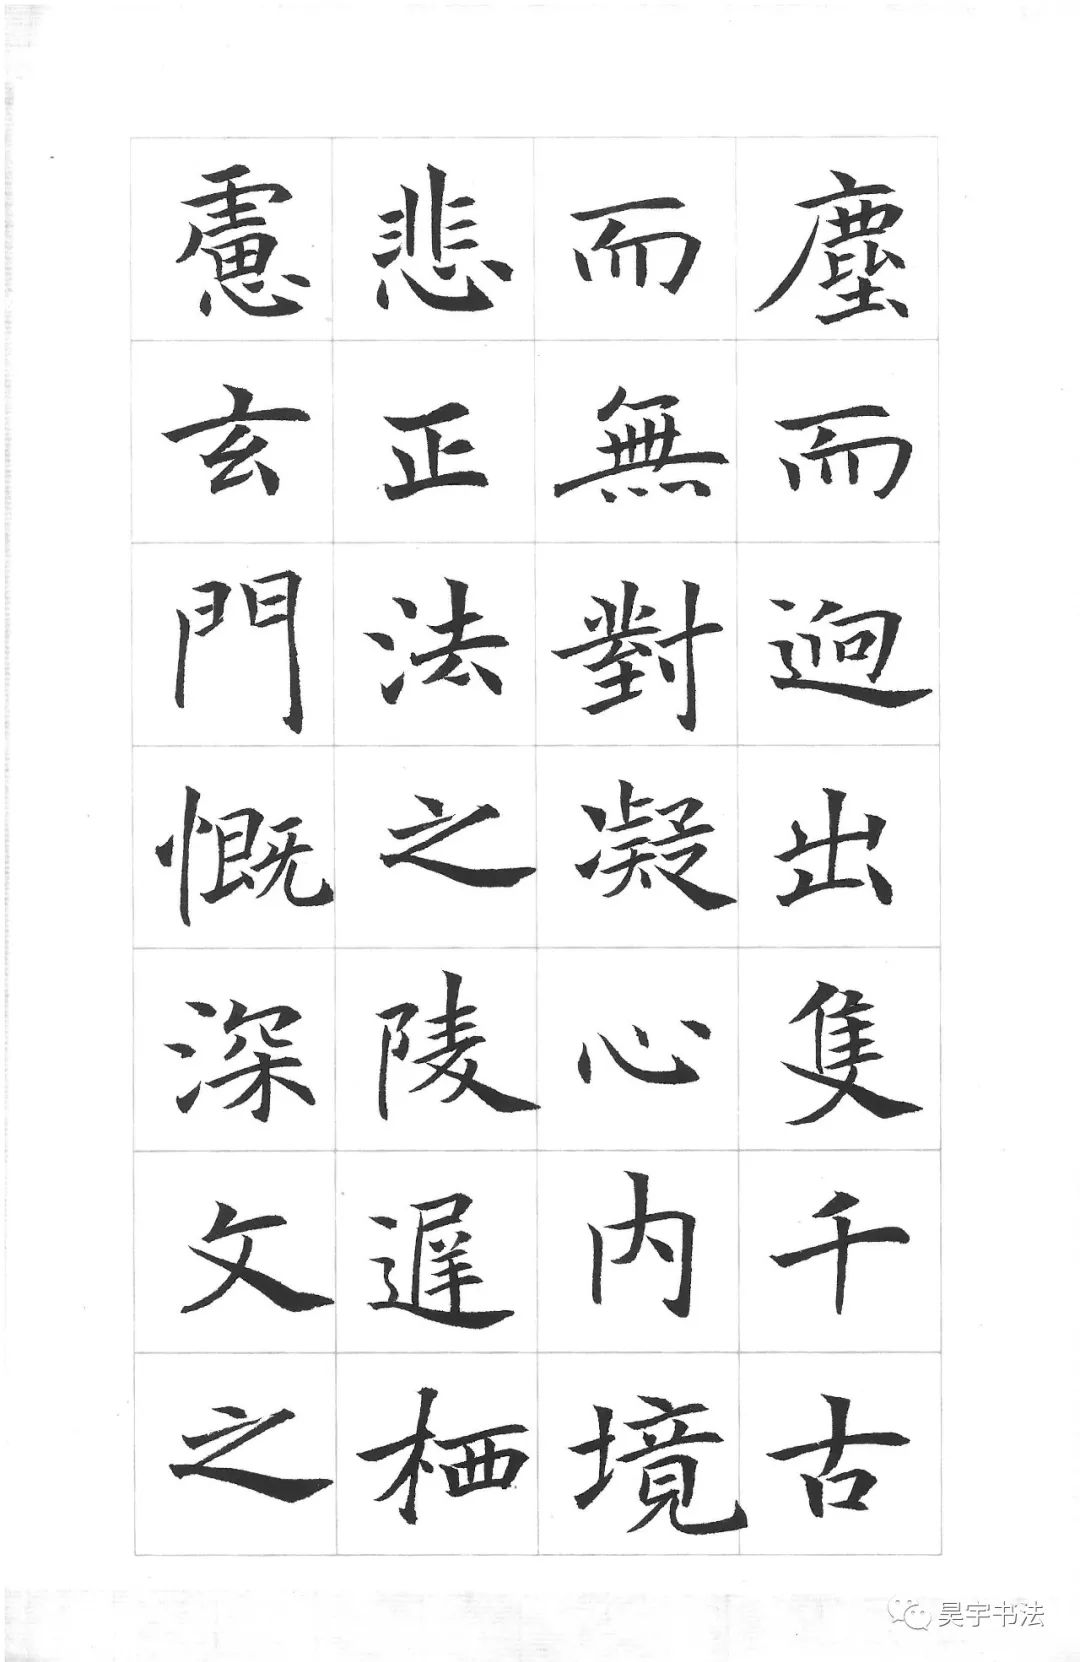 塵而迥出隻千古
而無對凝心內境
悲正法之陵遲栖
慮玄門慨深文之
昊宇书法